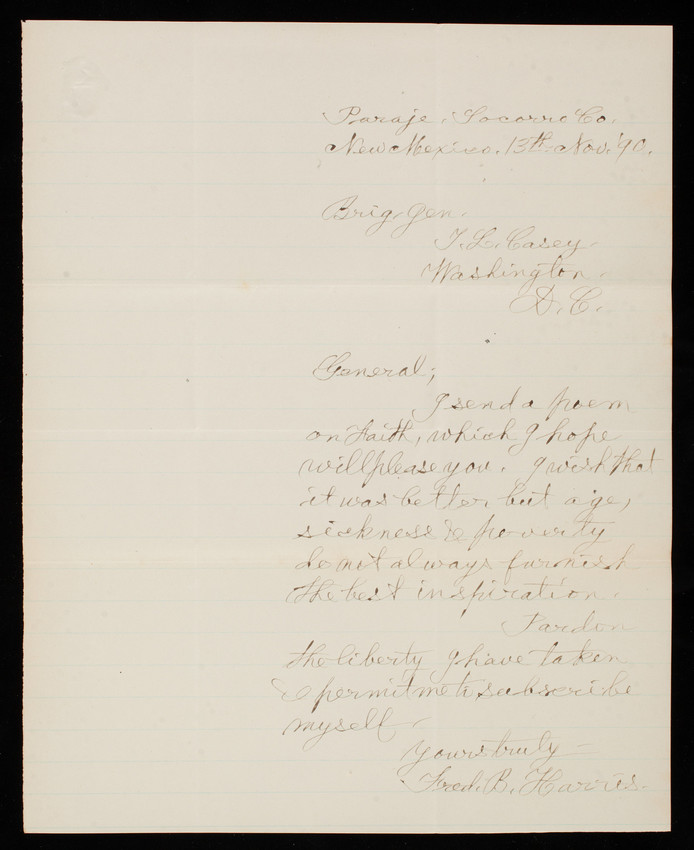 Paraje, Socorro Co.
New Mexico. 13th Nov. '90.
Brig. Gen.
T. L. Casey.
Washington.
D. C.
General;
I send a poem
on Faith, which I hope
will please you. I wish that
it was better, but age,
sickness & poverty
do not always furnish
the best inspiration.
Pardon
the liberty I have taken
& permit me to subscribe
myself.
Yours truly -
Fred. B. Harris.